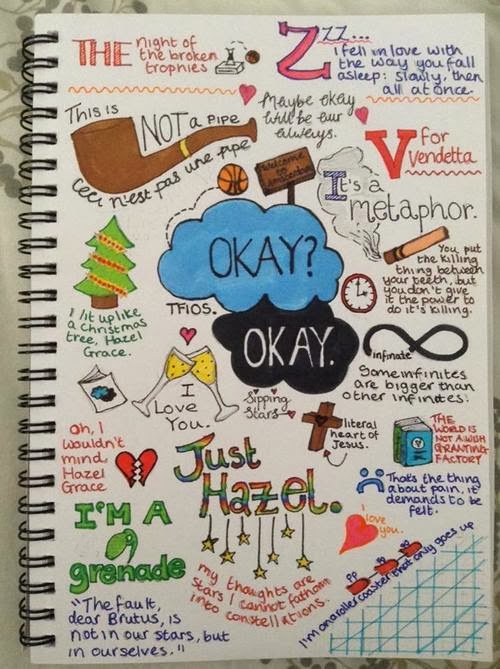 THE night of
the broken
trophies
Zzzz...
I fell in love with
the way you fall
asleep: slowly, then
all at once.
This is
NOT a PIPE
Ceci n'est pas une pipe
Maybe okay
will be our
always.
V for
Vendetta
Welcome
to
Amsterdam
It's a
metaphor.
OKAY?
You put
the killing
thing between
your teeth, but
you don't give
it the power to
do it's killing.
I lit up like
a christmas
tree, Hazel
Grace.
TFIOS.
OKAY.
infinate
Some infinites
are bigger than
other infinites.
I
Love
You.
Sipping
Stars
literal
heart of
Jesus.
THE
WORLD IS
NOT A WISH
GRANTING
FACTORY
Oh, I
wouldn't
mind,
Hazel
Grace
Just
Hazel.
That's the thing
about pain, it
demands to be
felt.
I'M A
grenade
I love
you.
my thoughts are
stars I cannot fathom
into constellations.
I'm on a roller coaster that only goes up
"The fault,
dear Brutus, is
not in our stars, but
in ourselves."